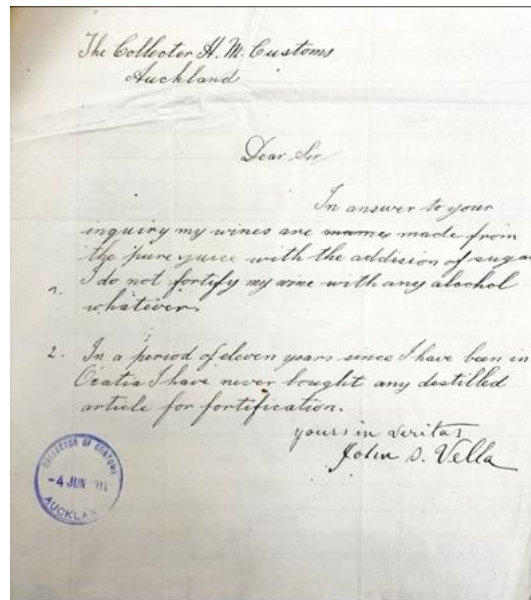 The Collector H. M. Customs
Auckland
Dear Sir
In answer to your
inquiry my wines are made from
the pure juice with the addision of sugar
1. I do not fortify my wine with any alcohol
whatever.
2. In a period of eleven years since I have been in
Oratia I have never bought any destilled
article for fortification.
yours in veritas
John D. Vella
COLLECTOR OF CUSTOMS
-4 JUN
AUCKLAND